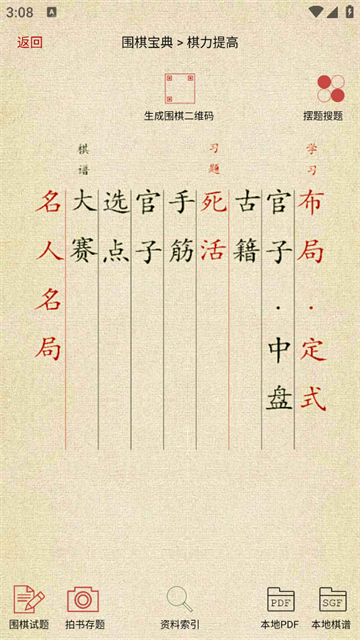 3:08
返回
围棋宝典 > 棋力提高
生成围棋二维码
摆题搜题
学习
布局·定式
官子·中盘
古籍
习题
死活
手筋
官子
选点
棋谱
大赛
名人名局
围棋试题
拍书存题
资料索引
PDF
本地PDF
SGF
本地棋谱